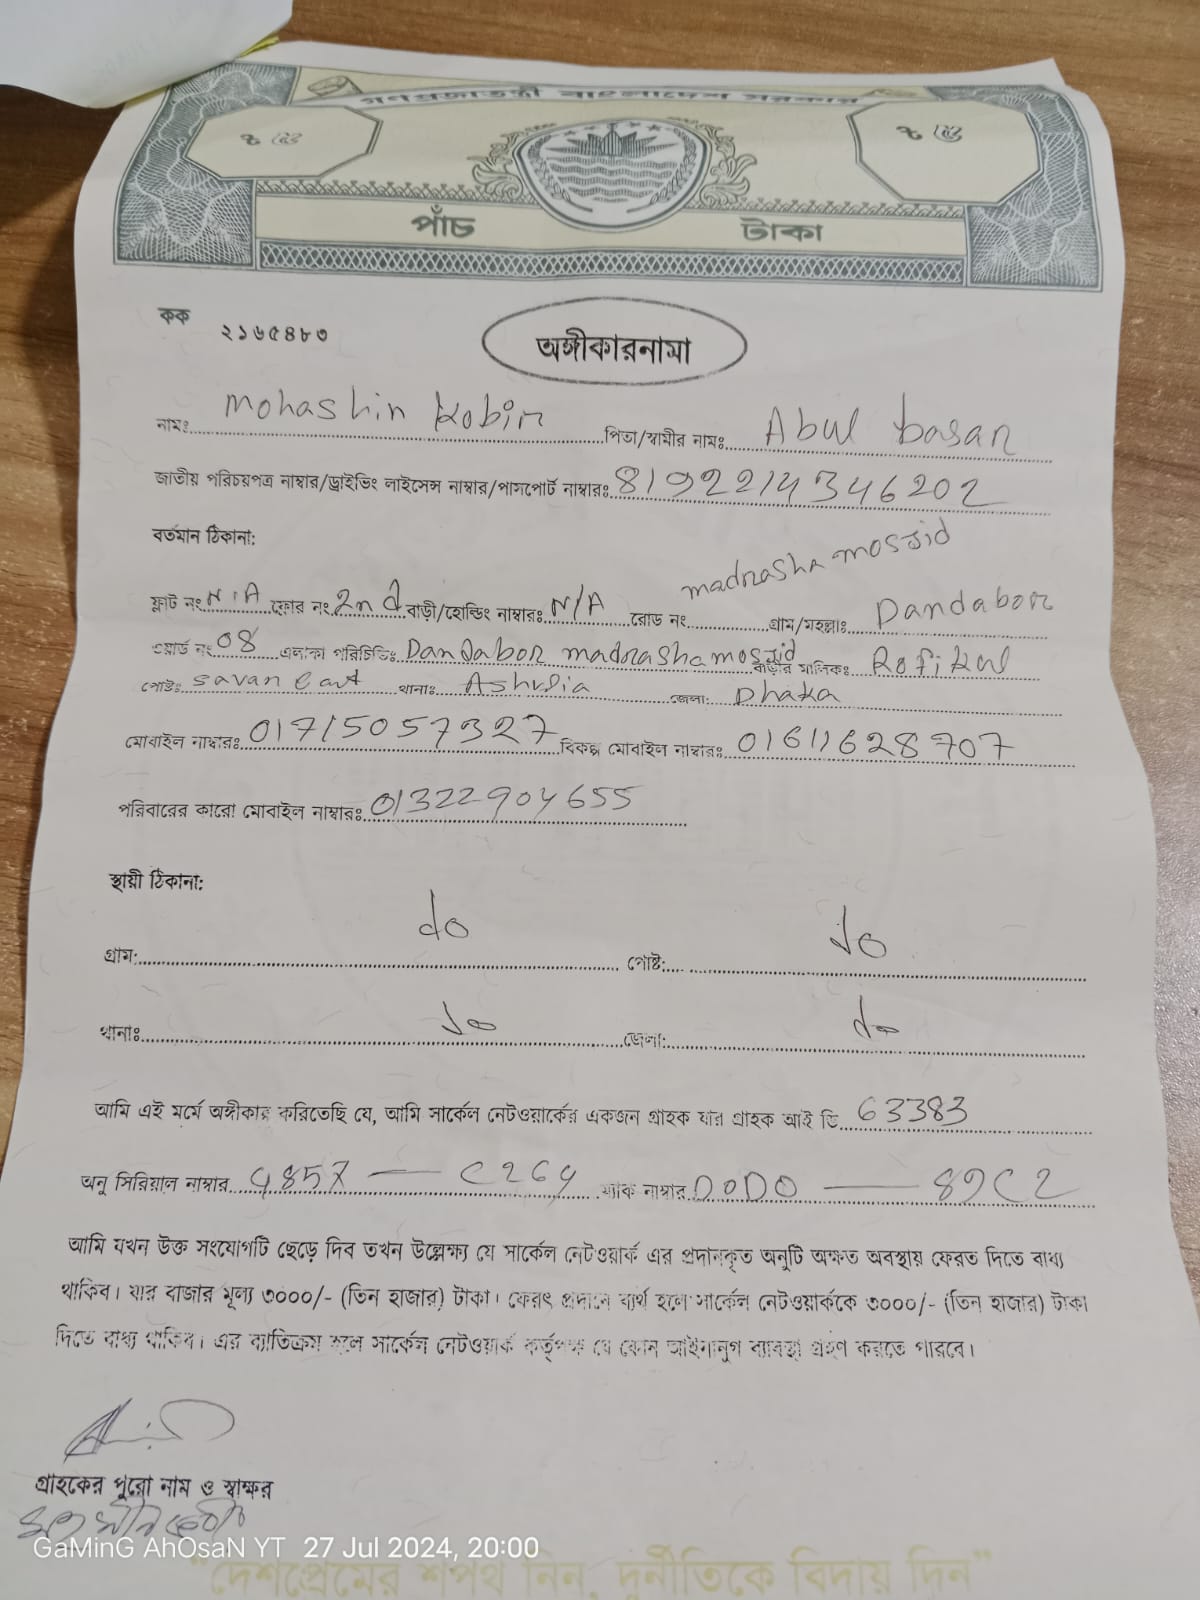 গণপ্রজাতন্ত্রী বাংলাদেশ সরকার
৳ ৫ ৳ ৫
পাঁচ টাকা
কক ২১৬৫৪৮৩
অঙ্গীকারনামা
নামঃ Mohashin Kobir পিতা/স্বামীর নামঃ Abul basar
জাতীয় পরিচয়পত্র নাম্বার/ড্রাইভিং লাইসেন্স নাম্বার/পাসপোর্ট নাম্বারঃ 8192214346202
বর্তমান ঠিকানা:
ফ্লাট নং N/A ফ্লোর নং 2nd বাড়ী/হোল্ডিং নাম্বারঃ N/A রোড নং madrasha mosjid গ্রাম/মহল্লাঃ Dandabor
ওয়ার্ড নং 08 এলাকা পরিচিতিঃ Dandabor madrasha mosjid বাড়ীর মালিকঃ Rofikul
পোষ্টঃ savar cant থানাঃ Ashulia জেলা: Dhaka
মোবাইল নাম্বারঃ 01715057327 বিকল্প মোবাইল নাম্বারঃ 01611628707
পরিবারের কারো মোবাইল নাম্বারঃ 01322904655
স্থায়ী ঠিকানা:
গ্রাম: do পোষ্ট: do
থানাঃ do জেলা: do
আমি এই মর্মে অঙ্গীকার করিতেছি যে, আমি সার্কেল নেটওয়ার্কের একজন গ্রাহক যার গ্রাহক আই ডি 63383
অনু সিরিয়াল নাম্বার 9857 — C264 ম্যাক নাম্বার D0D0 — 89C2
আমি যখন উক্ত সংযোগটি ছেড়ে দিব তখন উল্লেক্ষ্য যে সার্কেল নেটওয়ার্ক এর প্রদানকৃত অনুটি অক্ষত অবস্থায় ফেরত দিতে বাধ্য
থাকিব। যার বাজার মূল্য ৩০০০/- (তিন হাজার) টাকা। ফেরৎ প্রদানে ব্যর্থ হলে সার্কেল নেটওয়ার্ককে ৩০০০/- (তিন হাজার) টাকা
দিতে বাধ্য থাকিব। এর ব্যাতিক্রম হলে সার্কেল নেটওয়ার্ক কর্তৃপক্ষ যে কোন আইনানুগ ব্যাবস্থা গ্রহণ করতে পারবে।
গ্রাহকের পুরো নাম ও স্বাক্ষর
GaMinG AhOsaN YT 27 Jul 2024, 20:00
"দেশপ্রেমের শপথ নিন, দুর্নীতিকে বিদায় দিন"